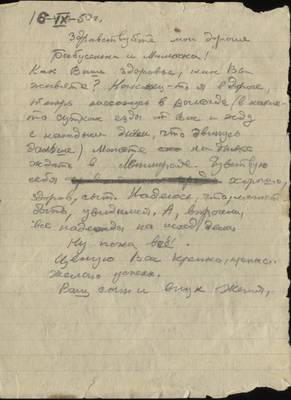 16-IX-50г.
Здравствуйте мои дорогие
Бабусенька и Мамочка!
Как Ваше здоровье, как Вы
живете? Наконец-то я в дороге,
теперь нахожусь в Вологде (в каких-
то сутках езды от Вас и жду
с каждым днем, что двинусь
дальше) Можете
ждать в Ленинграде. Чувствую
себя хорошо,
здоров, сыт. Надеюсь, что, может
быть, увидимся. А, впрочем,
все надежды на исход дела.
Ну пока всё.
Целую Вас крепко, крепко.
Желаю успеха.
Ваш сын и внук Женя.